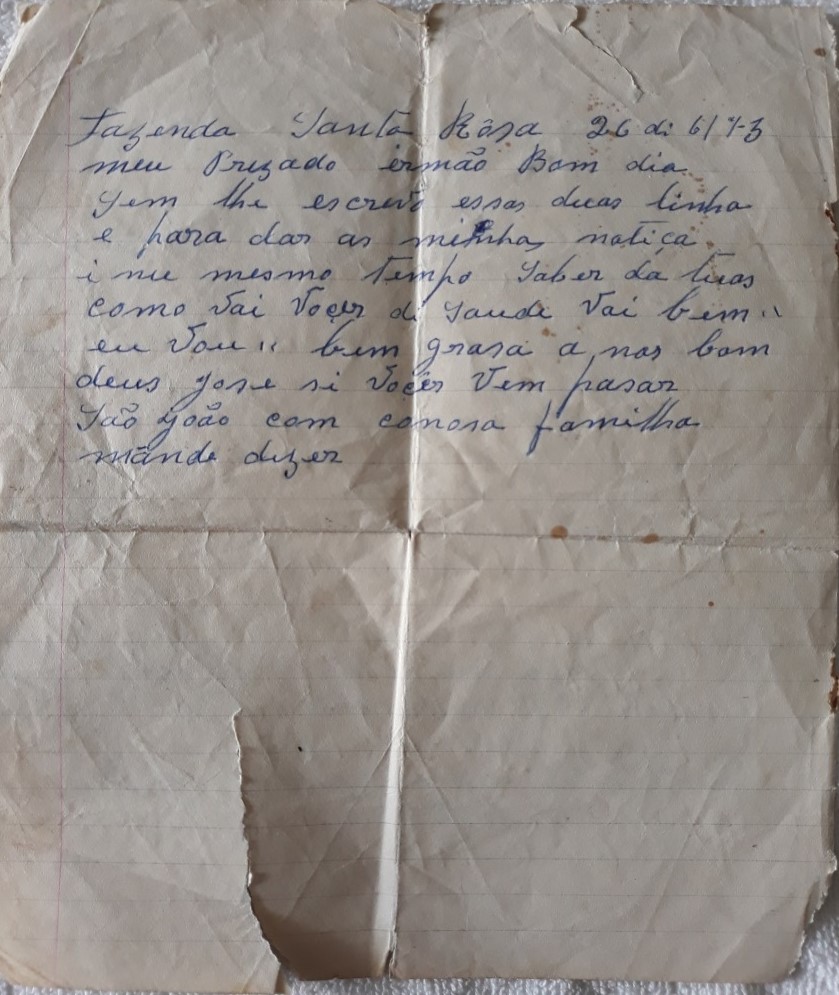 Fazenda Santa Rôsa 26 di 6/73
meu Prezado irmão Bom dia
Jem lhe escrevo essas duas linha
e para dar as minhas notiça
i nu mesmo tempo Saber da tuas
como Vai Voçer di Saude Vai bem"
eu Vou" bem grasa a nos bom
deus jose si Voçêr Vem pasar
São joão com conosa familha
mande dizer